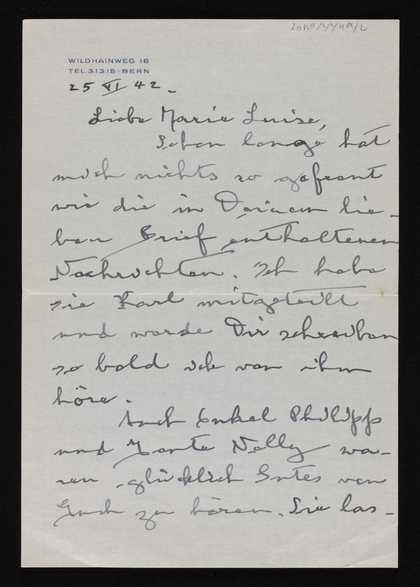 WILDHAINWEG 16
TEL. 3.13.15 - BERN
25 VI 42.
Liebe Marie Luise,
Schon lange hat
mich nichts so gefreut
wie die in Deinem lie-
ben Brief enthaltenen
Nachrichten. Ich habe
sie Karl mitgeteilt
und werde Dir schreiben
so bald ich von ihm
höre.
Auch Onkel Philipp
und Tante Nelly wa-
ren glücklich Gutes von
Euch zu hören. Sie las-